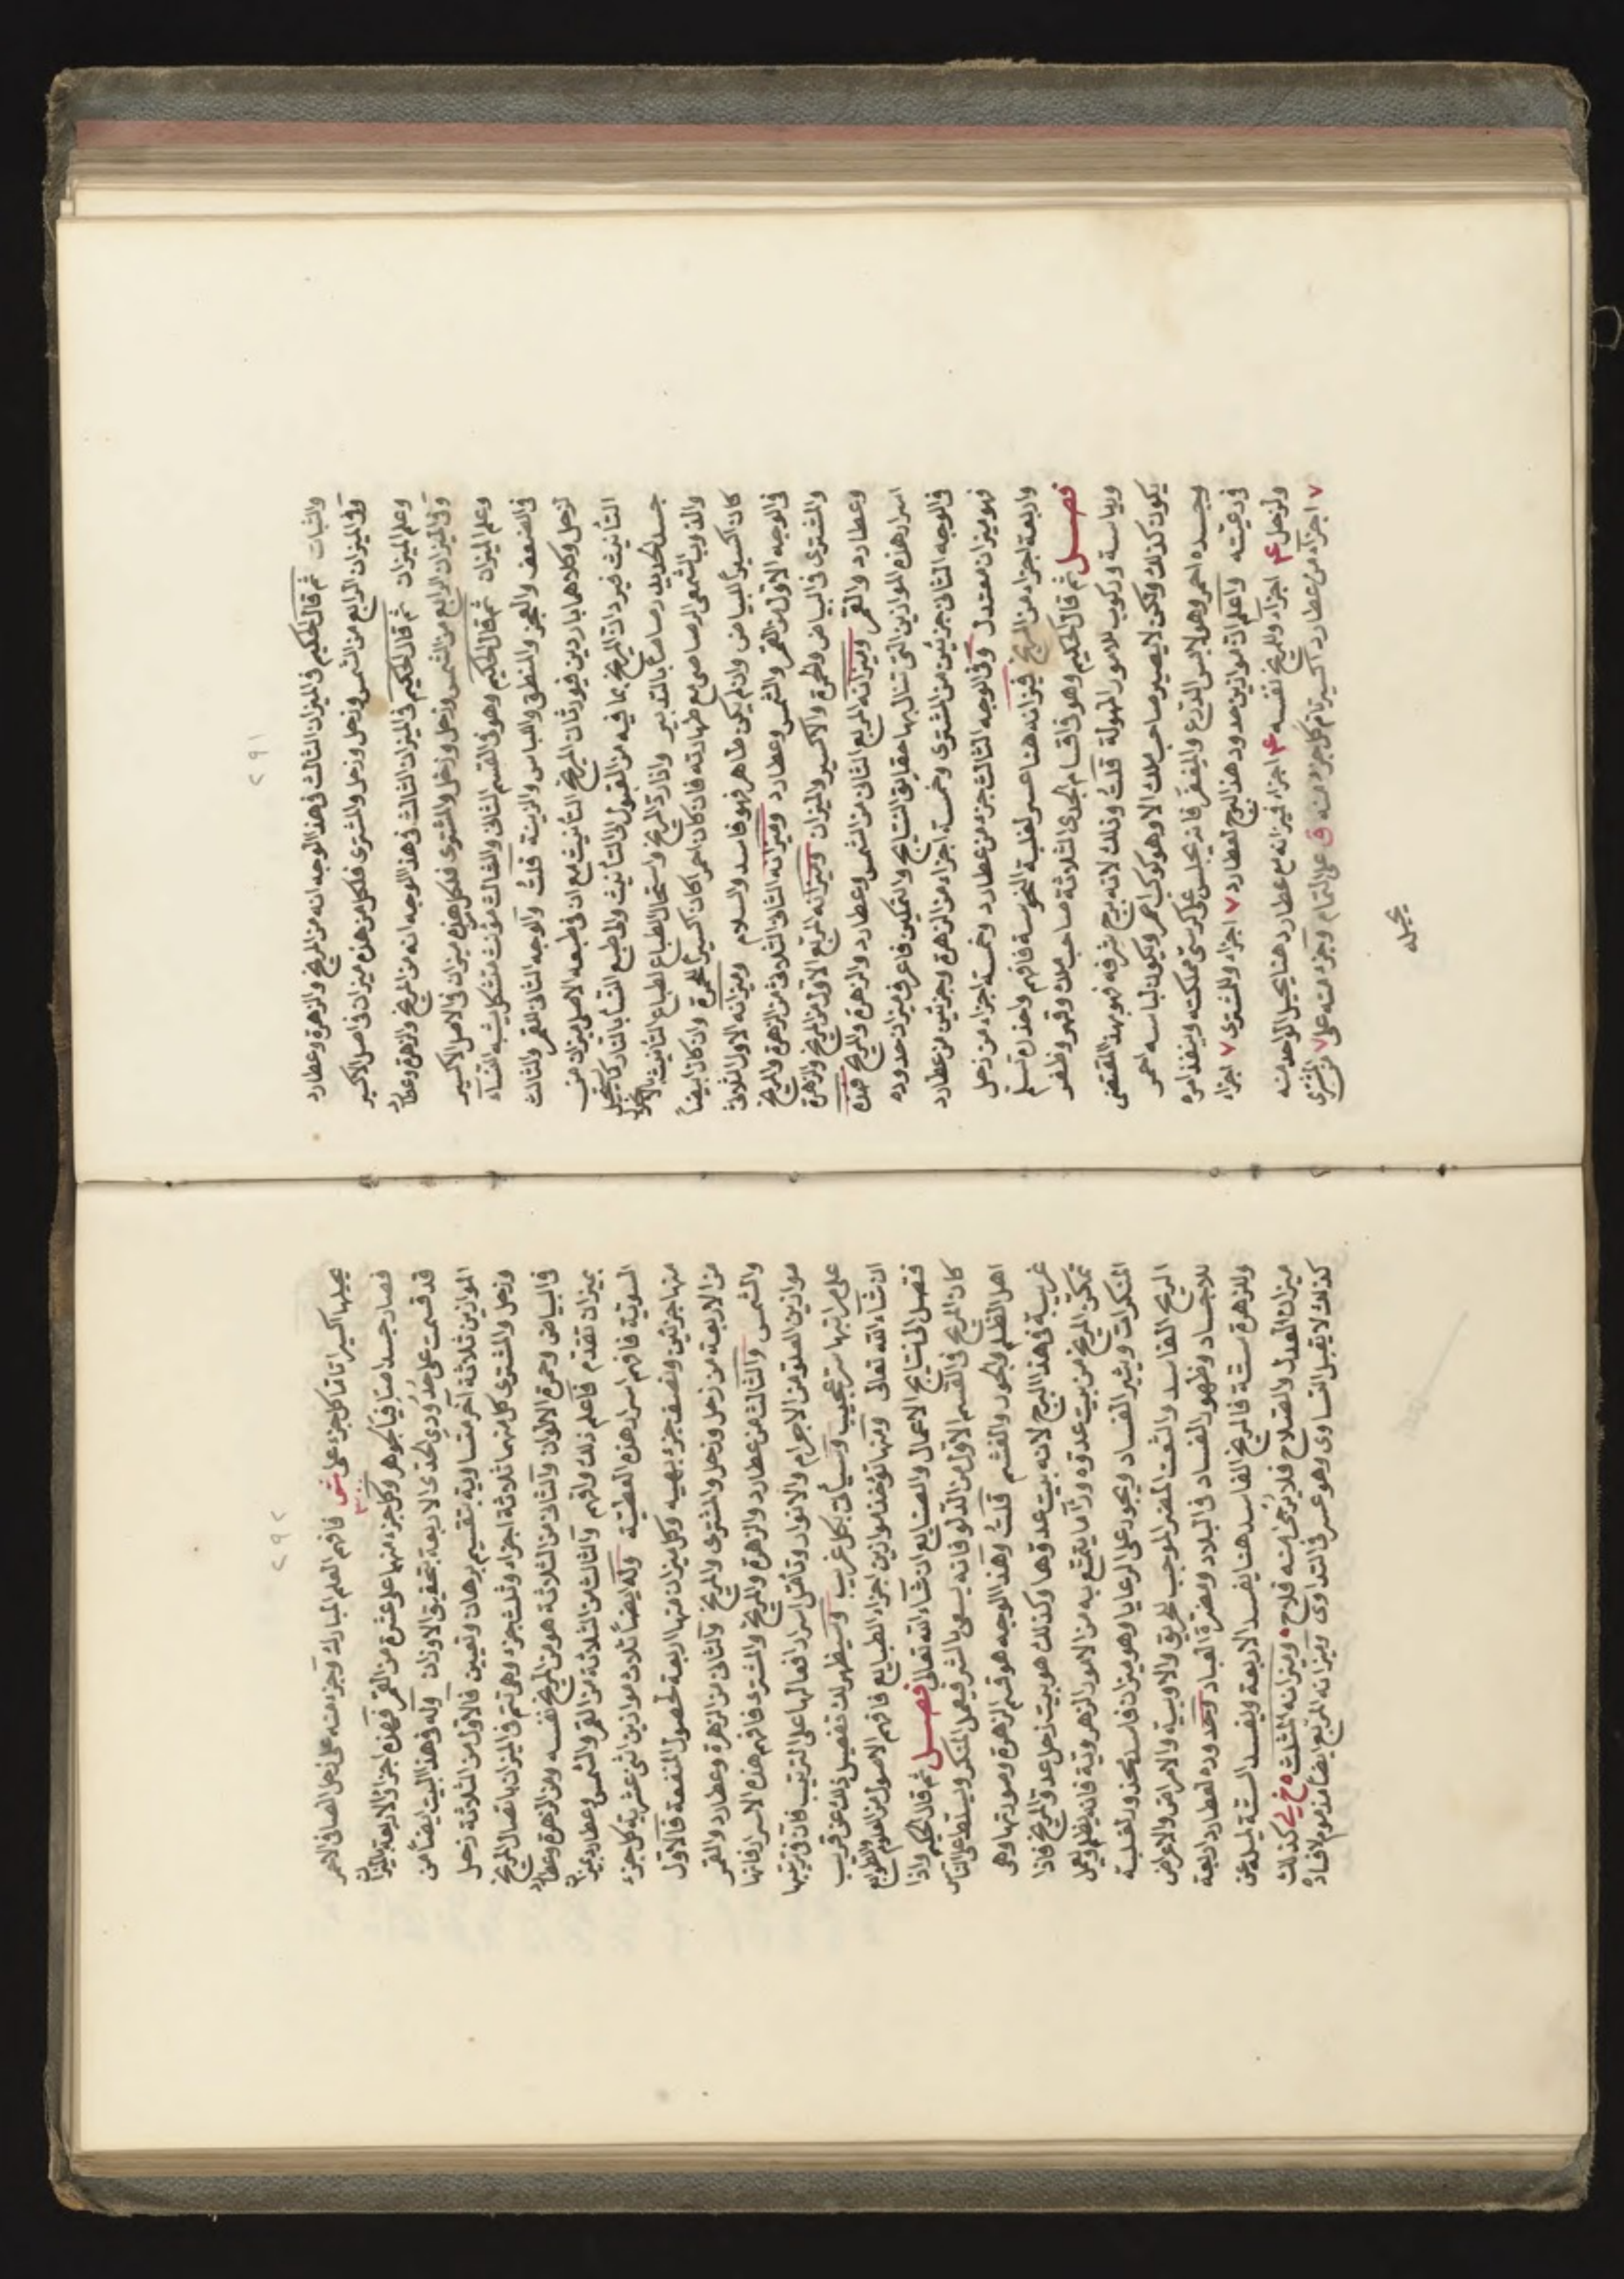 ٢٩١
والثبات ثم قال الحكيم في الميزان الثالث في هذا الوجه انه من المريخ والزهرة وعطارد
وفي الميزان الرابع من الشمس وزحل وزحل والمشترى فلكل من هذه ميزان في اصل الاكسير
وعلم الميزان ثم قال الحكيم في الميزان الثالث في هذا الوجه انه من المريخ والزهرة وعطارد
وفي الميزان الرابع من الشمس وزحل وزحل والمشترى فلكل هذه ميزان في الاصل الاكسير
وعلم الميزان ثم قال الحكيم وهو في القسم الثاني والثالث مؤنث متشكل يشبه النساء
في الضعف والعجز والمنطق واللباس والزينة قلت والوجه الثاني للقمر والثالث
لزحل وكلاهما باردين فيورثان المريخ التأنيث مع ان في طبعه الاصلي ميزان من
التأنيث غير ان المريخ بما فيه من القبول الى التأنيث والى طبع النساء بالتدابير يستحيل
جسد الحديد رصاصا بالتدبير واذا زاد المريخ واستحال الطباع لطباع التأنيث بالانحلال
والذوب الشمعي الرصاصي مع طهارته فان كان احمرا كان اكسيرا للحمرة وان كان ابيضا
كان اكسيرا للبياض وان لم يكن طاهر فهو فاسد والسلام وميزانه الاول الثلاثي
في الوجه الاول من القمر والشمس وعطارد وميزانه الثاني الثلاثي من الزهرة والمريخ
والمشترى في البياض والحمرة والاكسير والميزان وميزانه المربع الاول من المريخ والزهرة
وعطارد والقمر وميزانه المربع الثاني من الشمس وعطارد والزهرة والمريخ فهذه
اسرار هذه الموازين التي تنال بها حقايق النتايج والتمكين فاعرف ميزان حدوده
في الوجه الثاني جزئين من المشترى وخمسة اجزاء من الزهرة وجزئين من عطارد
فهو ميزان معتدل وفي الوجه الثالث جزء من عطارد وخمسة اجزاء من زحل
واربعة اجزاء من المريخ فيزانه هنا عسر لغلبة النحوسة فافهم واحذر تسلم
فصل ثم قال الحكيم وهو في اقسام الجدى الثلاثة صاحب ملك وقهر وظفر
ورياسة وركوب للامور المهولة قلت وذلك لانه برج شرفه فهو بهذا المقتضى
يكون كذلك ولكن لا يصير صاحب ملك الا وهو كوكب احمر ويكون لباسه احمر
وجسده احمر وهو لابس الدرع والمغفر فانه يجلس على كرسي مملكته وينفذ امره
في رعيته واعلم ان موازين حدود هذا البرج لعطارد ٧ اجزاء وللمشترى ٧ اجزاء
ولزحل ٤ اجزاء وللمريخ نفسه ٤ اجزاء فيزانه مع عطارد هنا يحيل الواحد منه
٧ اجزاء من عطارد اكسيرا تام كل جزء منه في على التمام وجزء منه على ٧ من المشترى
يحيله
٢٩٢
يحيلها اكسيرا تاما كل جزء على ش فافهم العلم المبارك وجزء منه على زحل الصافي الاحمر
فصار جسدا صافيا كجوهر وكل جزء منهما على عشرة من القمر فهذه اجزاء الاربعة بالميزان
قد قسمت على حدودى الجدى الاربعة بتحقيق الاوزان وله في هذا البيت ايضا من
الموازين ثلاثة اخر متساوية بتقسيم برهان وتعيين فالاول من الثلاثة زحل
وزحل والمشترى كل منهما ثلاثة اجزاء وثلث جزء وهي تتم في الميزان باتصال المريخ
في البياض وحمرة الالوان والثاني من الثلاثة هو من المريخ نفسه ومن الزهرة وعطارد
بميزان تقدم فاعلم ذلك وافهم والثالث من الثلاثة من القمر والشمس وعطارد بميزان
السوية فافهم اسرار هذه العطية وله ايضا ثلاث موازين اثنى عشرية كل جزء
منها جزئين ونصف جزء بهية وكل ميزان منها اربعة لحصول المنفعة فالاول
من الاربعة من زحل وزحل والمشترى والمريخ والثاني من الزهرة وعطارد والقمر
والشمس والثالث من عطارد والزهرة والمريخ والمشترى فافهم هذه الاسرار فانها
موازين العلو من الاجرام والانوار وتأمل اسرار افعالها على الترتيب فان في ترتيبها
على مراتبها سر عجيب وسيأتي بكل غريب وسيظهر لك تفصيل ذلك عن قريب
ان شاء الله تعالى ومنها تؤخذ موازين اجزاء الطبايع فافهم الاصول من العلوم والطوالع
فتصل الى نتايج الاعمال والصنايع ان شاء الله تعالى فصل ثم قال الحكيم واذا
كان المريخ في القسم الاول من الدلو فانه يسعى بالشر فيعمل المنكر ويسلط على الناس
اهل الظلم والجور والغشم قلت وهذا الوجه هو قسم الزهرة وصورتها وهى
غريبة في هذا البرج لانه بيت عدوها وكذلك هو بيت زحل عدو المريخ فاذا
تمكن المريخ من بيت عدوه ورأى ما يتمتع به من الامور الزهروية فانه يظلم ويعمل
المنكرات ويثير الفساد ويجور على الرعايا وهو ميزان فاسد يحذر لغلبة
الريح الفاسد والشعث المضر الموجب لحريق والاوبية والامراض والاعراض
للاجساد وظهور الفساد في البلاد ومضرة العباد وحدوده لعطارد اربعة
وللزهرة ستة فالمريخ الفاسد هنا يفسد الاربعة ويفسد الستة لميله عن
ميزان العدل والصلاح فلا يرجى منه فلاح وميزانه المثلث ه خ لى كذلك
كذلك لا يقبل التساوى وهو عسر في التداوى وميزانه المربع ايضا مذموم لافساده